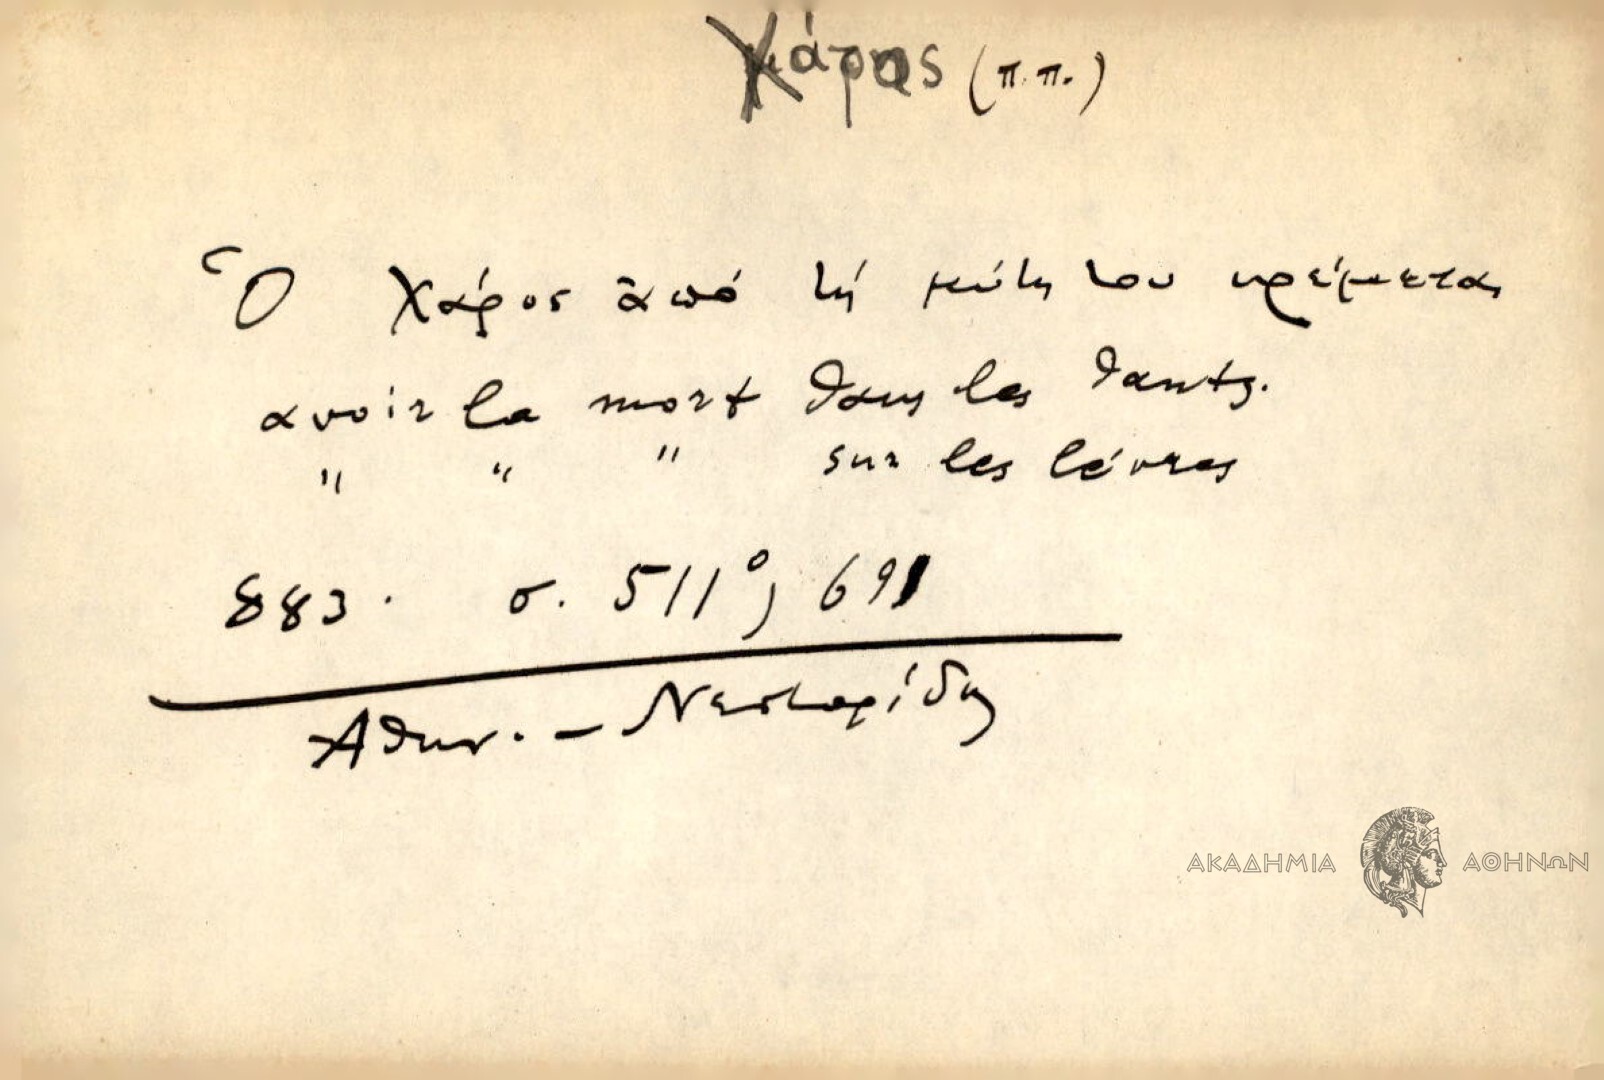 Χάρος (π.π.)
Ὁ Χάρος ἀπό τή μύτη του κρέμεται
avoir la mort dans les dants.
" " " sur les lévres
883. σ. 511⁰, 691
Ἀθην. - Νεστορίδη
ΑΚΑΔΗΜΙΑ ΑΘΗΝΩΝ